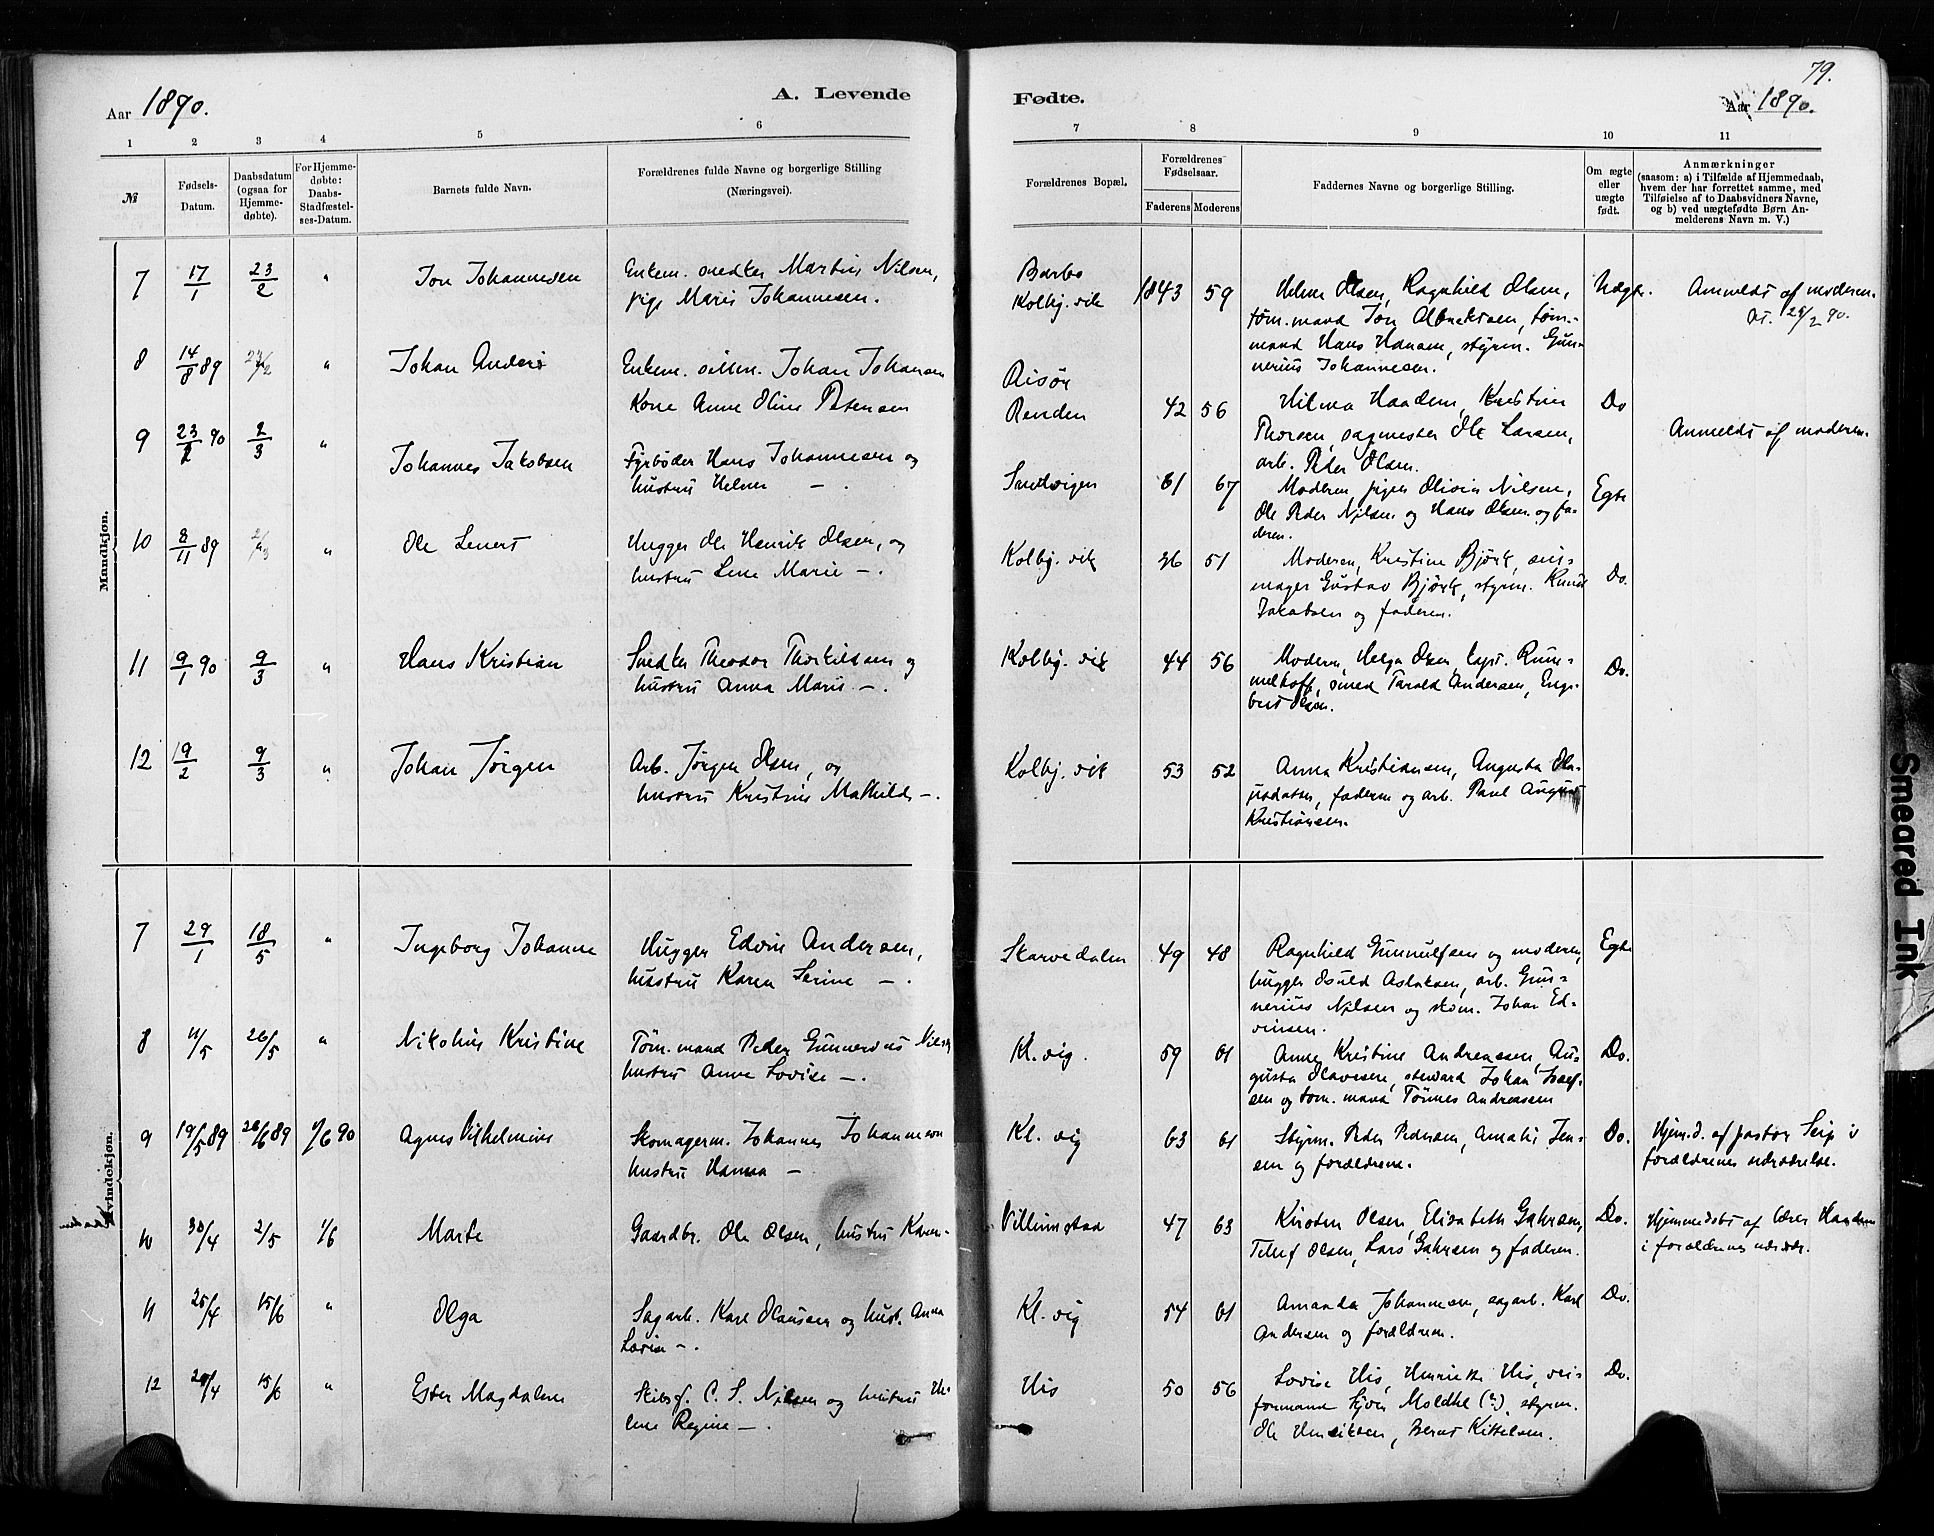 79.
Aar 1890.
A. Levende
Fødte.
Aar 1890.
1 2 3 4 5 6 7 8 9 10 11
№
Fødsels-
Datum.
Daabsdatum
(ogsaa for
Hjemme-
døbte).
For Hjemme-
døbte:
Daabs-
Stadfæstel-
ses-Datum.
Barnets fulde Navn.
Forældrenes fulde Navne og borgerlige Stilling
(Næringsvei).
Forældrenes Bopæl.
Forældrenes
Fødselsaar.
Faderens Moderens
Faddernes Navne og borgerlige Stilling.
Om ægte
eller
uægte
født.
Anmærkninger
(saasom: a) i Tilfælde af Hjemmedaab,
hvem der har forrettet samme, med
Tilføielse af to Daabsvidners Navne,
og b) ved uægtefødte Børn An-
melderens Navn m. V.)
Mandkjøn.
7 17/1 23/2 " Jon Johannesen
Enkem. snedker Martin Nilsen,
pige Marie Johannesen.
Barbo
Kolbj. vik
1843 59
Helene Olsen, Ragnhild Olsen,
tøm.mand Jon Albrektsen, tøm.-
mand Hans Hansen, styrm. Gun-
nerius Johannesen.
Uægt.
Anmeldt af moderen.
8 14/8 89 " Johan Anders
Enkem. Johan Johansen
Kone Anne Oline Petersen
Risør
Renden
42 56
Hilma Kristine
Thorsen, sagmester Ole Larsen,
arb. Peder Olsen.
Do
Anmeldt af moderen.
9 23/2 90 2/3 " Johannes Jakobsen
Fyrbøder Hans Johannesen og
hustru Helene — .
Sandvigen
61 67
Moderen, pigen Olivia Nilsen,
Ole Peder Nilsen og Hans Olsen og fa-
deren.
Egte
10 8/11 89 2/3 " Ole Lenert
Hugger Ole Henrik Olsen, og
hustru Lene Marie — .
Kolbj. vik
51
Moderen, Kristine Bjørk, seil-
mager Gustav Bjørk, styrm. Knud
Jakobsen og faderen.
Do.
11 9/1 90 9/3 " Hans Kristian
Snedker Theodor Thorkildsen og
hustru Anna Marie — .
Kolbj. vik
44 56
Moderen, Helga Olsen, kapt. Rum-
melhoff, smed Tarald Andersen, Enge-
bret Olsen.
Do.
12 19/2 9/3 " Johan Jørgen
Arb. Jørgen Olsen, og
hustru Kristine Mathilde — .
Kolbj. vik
53 52
Anna Kristiansen, Augusta Ola-
faderen og arb. Paul August
Kristiansen.
Kvindekjøn.
7 29/1 18/5 " Ingeborg Johanne
Hugger Edvin Andersen,
hustru Karen Serine — .
Skarvedalen
49 48
Ragnhild Gunnulfsen og moderen,
hugger Osuld Aslaksen, arb. Gun-
nerius Nilsen og skom. Johan Ed-
vinsen.
Egte
8 11/5 26/5 " Nikoline Kristine
Tøm.mand Peder Gunnerius Nilsen
hustru Anne Lovise — .
Kl. vig.
59 61
Anne Kristine Andreassen, Au-
gusta Olavesen, steward Johan Josef-
sen og tøm.mand Tønnes Andreassen
Do.
9 19/5 89 26/6 89 1/6 90 Agnes Vilhelmine
Skomagerm. Johannes Johannesen
hustru Hanna —
Kl. vig
63 61
Styrm. Peder Pedersen, Amalie Jen-
sen og forældrene.
Do.
Hjem.d. af pastor Seip i
forældrenes nærværelse.
10 30/4 2/5 1/6 Marte
Gaardbr. Ole Olsen, hustru Karen-
Villumstad
47 63
Kirsten Olsen, Elisabeth Gahrsen,
Tellef Olsen, Lars Gahrsen og faderen.
Do.
Hjemmedøbt af lærer
i forældrenes nærvær.
11 25/4 15/6 " Olga
Sagarb. Karl Olausen og hust. Anna
Lovise — .
Kl. vig
54 61
Amanda Johannesen, sagarb. Karl
Andersen og forældrene.
Do.
12 20/4 15/6 " Ester Magdalene
Skibsf. C. S. Nilsen og hustru He-
lene Regine — .
His
50 56
Lovise His, Henriette His, vei-
formand Moldthl (?), styrm.
Ole Henriksen, Bernt Kittelsen.
Do.
Smeared Ink